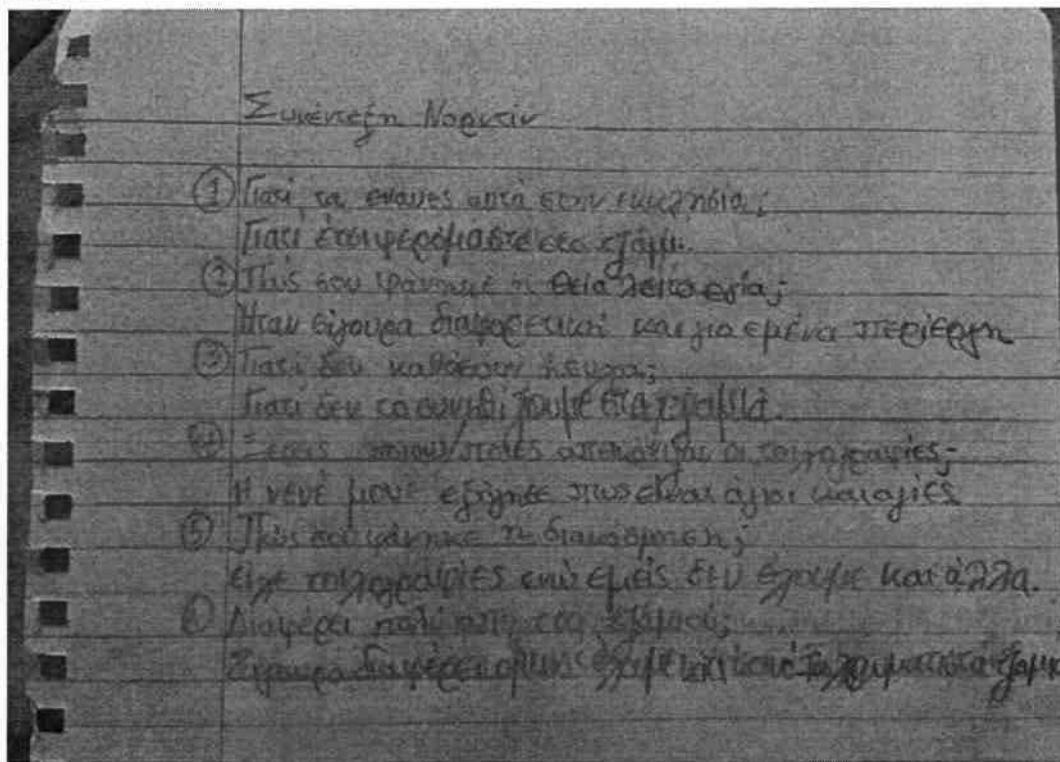 Συνέντεξη Νορντίν
① Γιατί τα έκανες αυτά στην εκκλησία;
Γιατί έτσι φερόμαστε στο τζαμί.
② Πώς σου φάνηκε η θεία λειτουργία;
Ήταν σίγουρα διαφορετική και για εμένα περίεργη
③ Γιατί δεν καθόσουν ήσυχα;
Γιατί δεν το συνηθίζουμε στα τζαμιά.
④ Ξέρεις ποιους/ποιες απεικόνιζαν οι τοιχογραφίες;
Η νενέ μου εξήγησε πως είναι άγιοι και αγίες
⑤ Πώς σου φάνηκε η διακόσμηση;
είχε τοιχογραφίες ενώ εμείς δεν έχουμε και άλλα.
⑥ Διαφέρει πολύ από το τζαμί;
Σίγουρα διαφέρει όμως έχουμε και τα χρωματιστά τζάμια